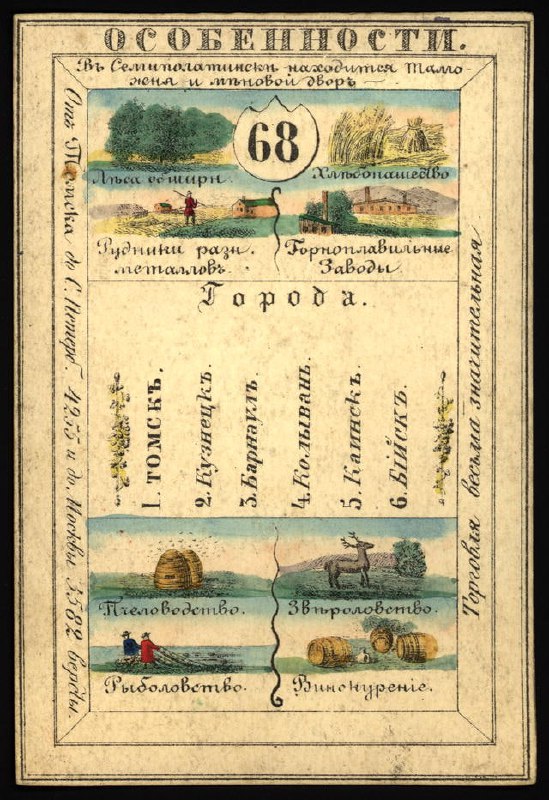 ОСОБЕННОСТИ.
Въ Семиполатинскѣ находится Тамо-
женя и мѣновой дворъ
68
Лѣса обширн.
Хлѣбопашество
Рудники разн.
металловъ.
Горноплавильные
Заводы.
Города.
1. ТОМСКЪ.
2. Кузнецкъ.
3. Барнаулъ.
4. Колывань.
5. Каинскъ.
6. Бійскъ.
Пчеловодство.
Звѣроловство.
Рыболовство.
Винокуреніе.
Отъ Томска до С. Петерб. 4255 и до Москвы 3582 версты.
Торговля весьма значительная